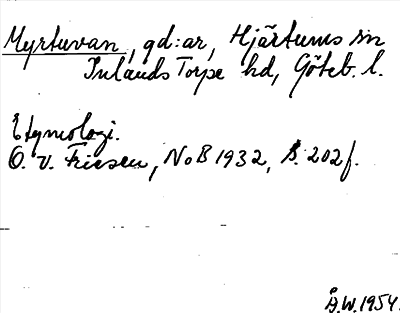 Myrtuvan, gd:ar, Hjärtums sn
Inlands Torpe hd, Göteb. l.
Etymologi.
O. v. Friesen, NoB 1932, S. 202 f.
Å.W. 1954.